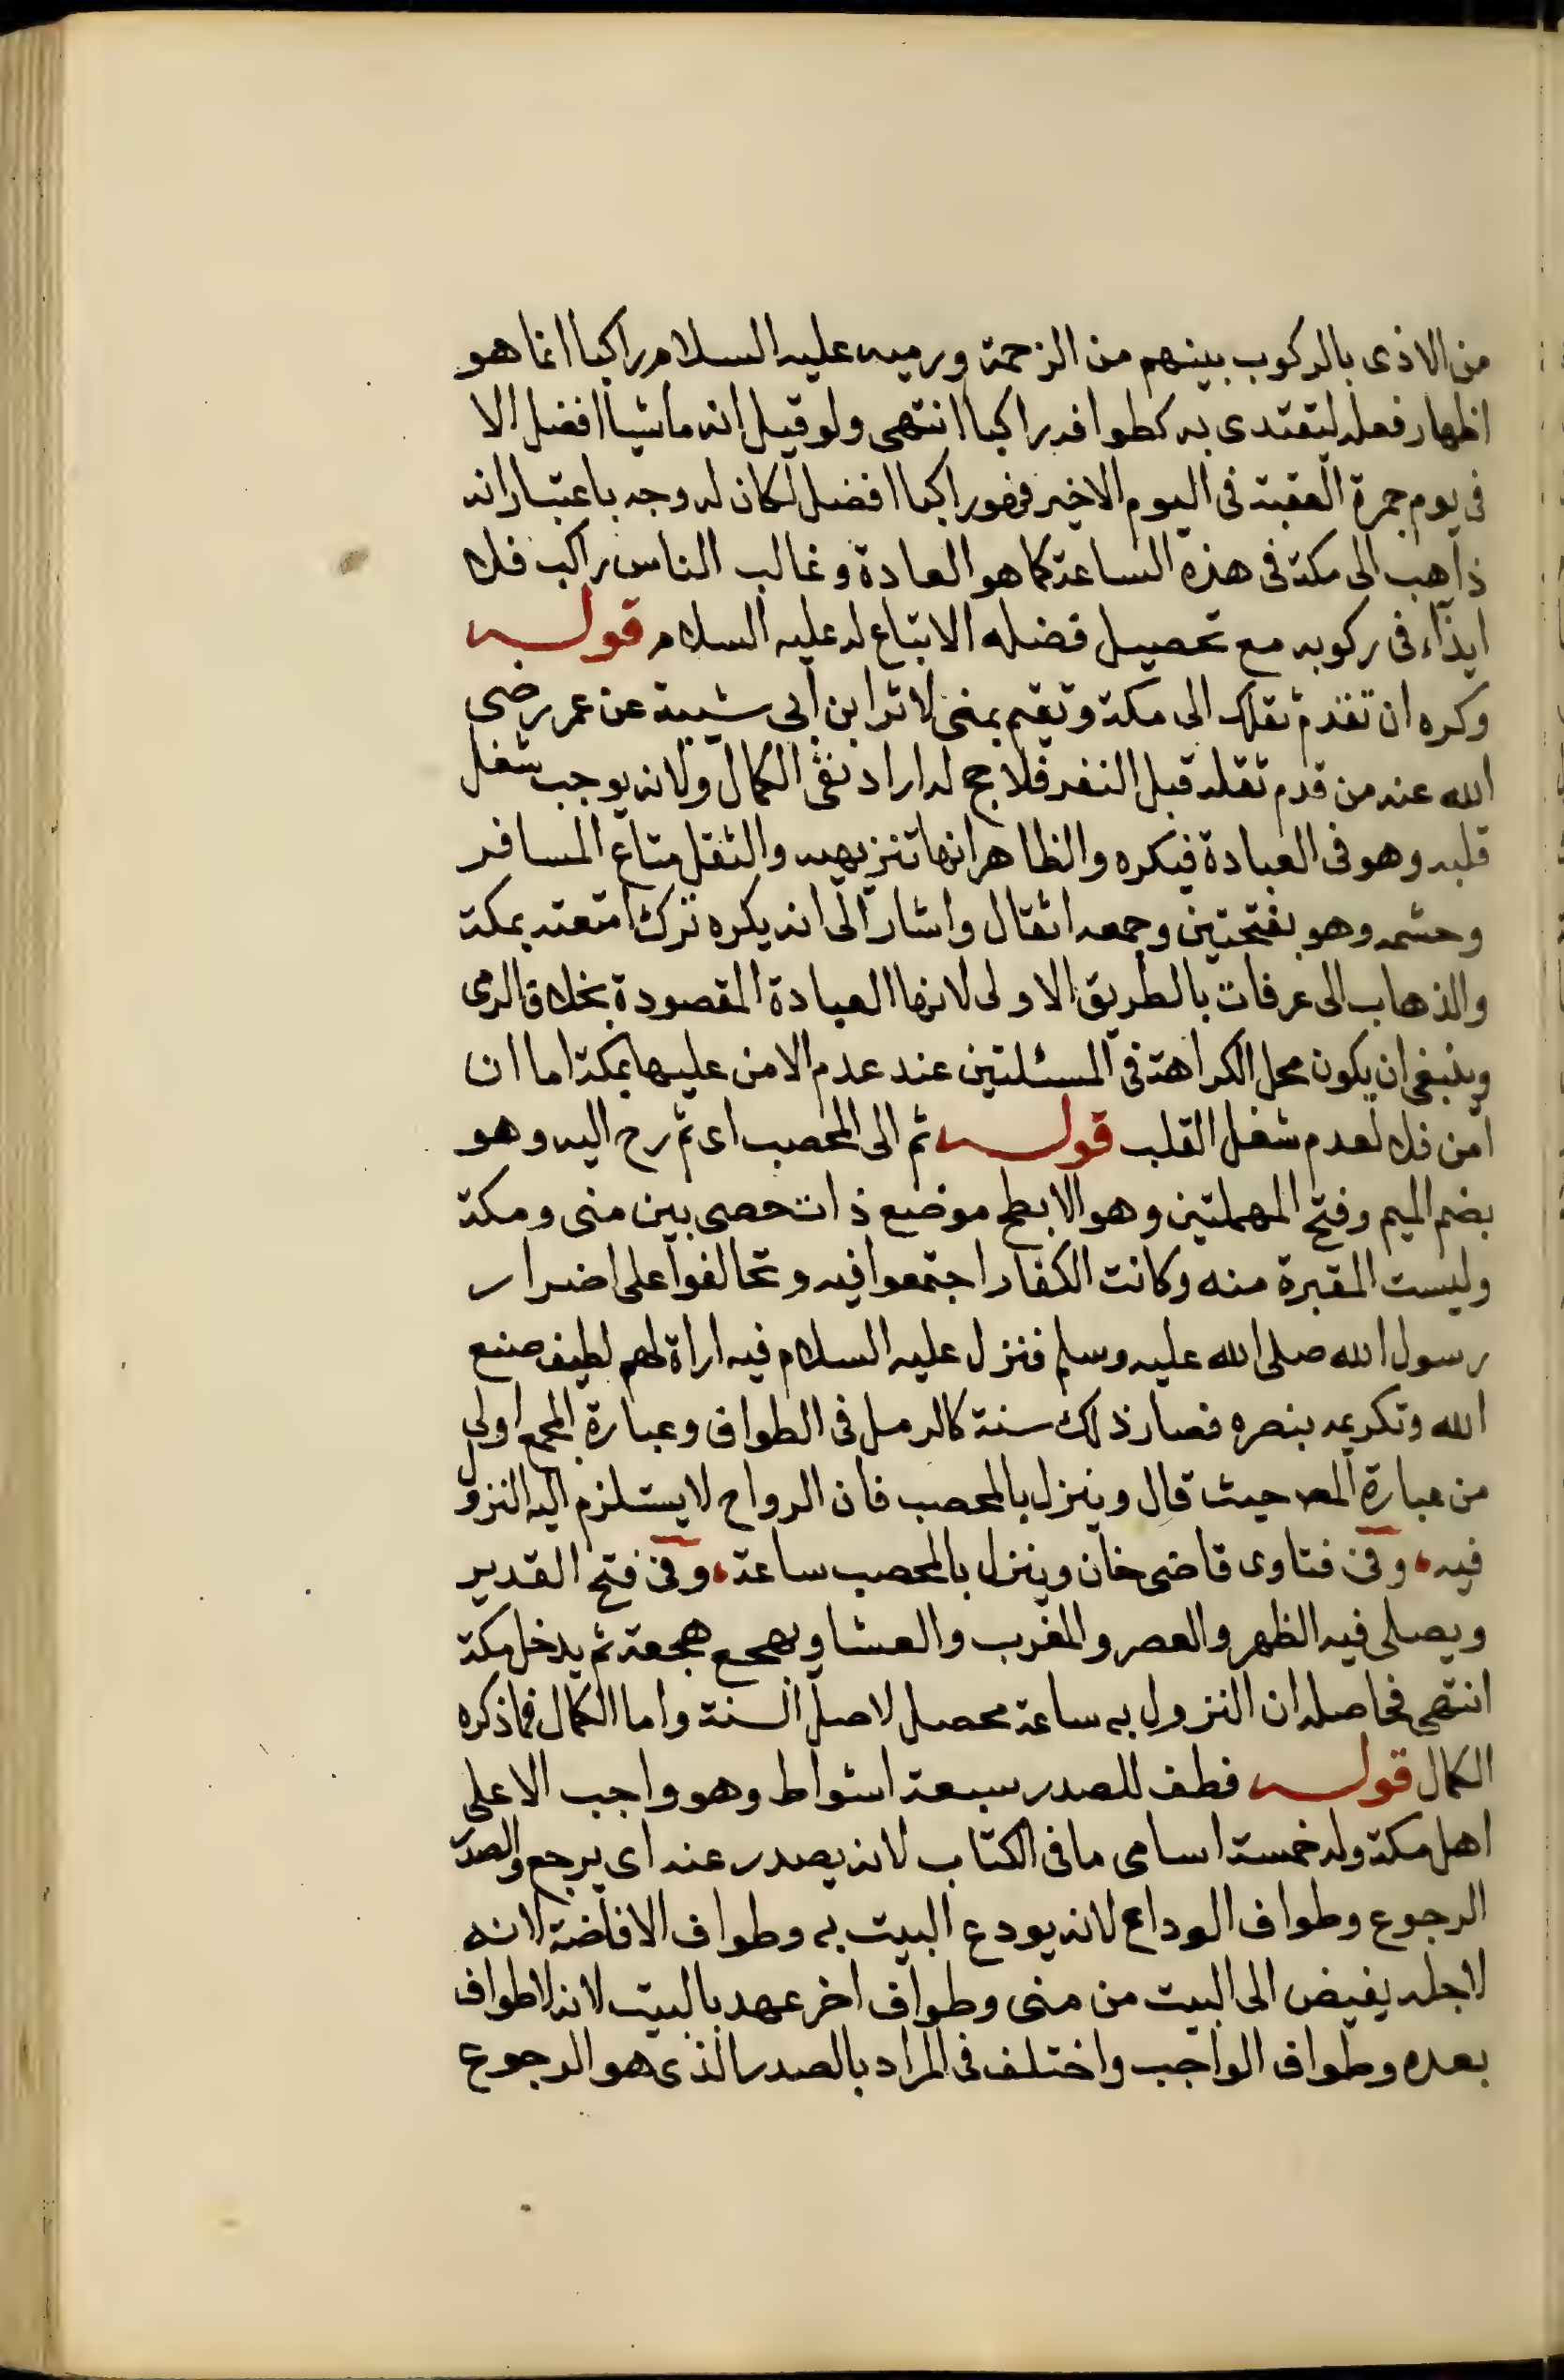 من الاذى بالركوب بينهم من الزحمة ورميه عليه السلام راكبا انما هو
اظهار فعله ليقتدى به كطوافه راكبا انتهى ولو قيل انه ماشيا افضل الا
فى يوم جمرة العقبة فى اليوم الاخير فهو راكبا افضل لكان له وجه باعتبار انه
ذاهب الى مكة فى هذه الساعة كما هو العادة وغالب الناس راكب فلا
ايذاء فى ركوبه مع تحصيل فضله الاتباع له عليه السلام قوله
وكره ان تقدم ثقلك الى مكة وتقيم بمنى لاثر ابن ابى شيبة عن عمر رضى
الله عنه من قدم ثقله قبل النفر فلا حج له اراد نفى الكمال ولانه يوجب شغل
قلبه وهو فى العبادة فيكره والظاهر انها تنزيهيه والثقل متاع المسافر
وحشمه وهو بفتحتين وجمعه اثقال واشار الى انه يكره ترك امتعته بمكة
والذهاب الى عرفات بالطريق الاولى لانها العبادة المقصودة بخلاف الرمى
وينبغى ان يكون محل الكراهة فى المسئلتين عند عدم الامن عليها بمكة اما ان
امن فلا لعدم شغل القلب قوله ثم الى المحصب اى ثم رح اليه وهو
بضم الميم وفتح المهملتين وهو الابطح موضع ذات حصى بين منى ومكة
وليست المقبرة منه وكانت الكفار اجتمعوا فيه وتحالفوا على اضرار
رسول الله صلى الله عليه وسلم فنزل عليه السلام فيه اراة لهم لطيف صنع
الله وتكريمه بنصره فصار ذلك سنة كالرمل فى الطواف وعبارة المجمع اولى
من عبارة المص حيث قال وينزل بالمحصب فان الرواح لا يستلزم اليه النزو
فيه، وفى فتاوى قاضى خان وينزل بالمحصب ساعة، وفى فتح القدير
ويصلى فيه الظهر والعصر والمغرب والعشا ويهجع هجعة ثم يدخل مكة
انتهى فحاصله ان النزول به ساعة محصل لاصل السنة واما الكمال فما ذكره
الكمال قوله فطف للصدر سبعة اشواط وهو واجب الا على
اهل مكة وله خمسة اسامى ما فى الكتاب لانه يصدر عنه اى يرجع والصدر
الرجوع وطواف الوداع لانه يودع البيت به وطواف الافاضة لانه
لاجله يفيض الى البيت من منى وطواف اخر عهد بالبيت لانه لا طواف
بعده وطواف الواجب واختلف فى المراد بالصدر الذى هو الرجوع